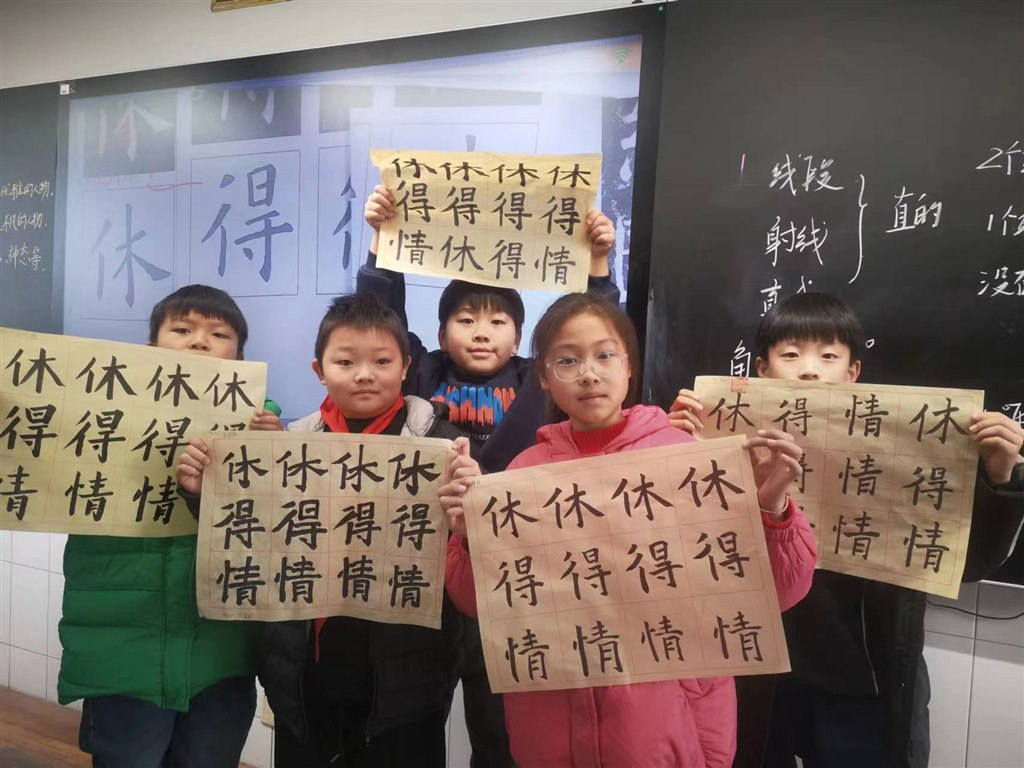 神态等.
休 得
休休休休
得得得得
情休得情
休休休休
得得得得
情情情
休休休休
得得得得
情情情情
休休休休
得得得得
情情情情
休得情休
情得
情情
线段
射线
直
直的
角
2个
1个
没